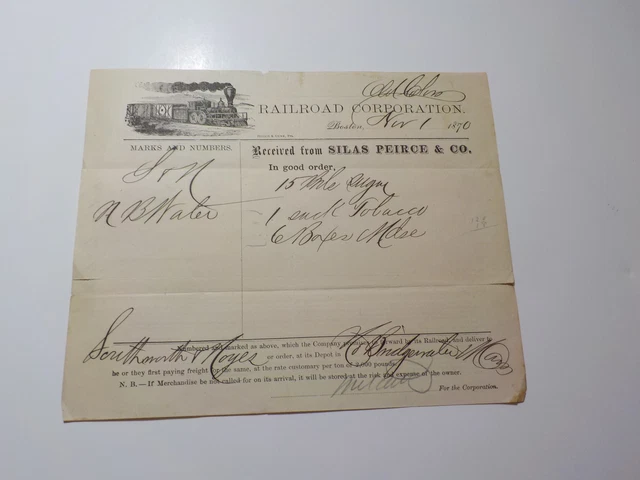 Old Colony
RAILROAD CORPORATION.
Boston, Nov 1 1870
MARKS AND NUMBERS.
Received from SILAS PEIRCE & CO.
In good order,
S & N
15 Bbls Sugar
N B Water
1 sack Tobacco
6 Boxes Mdse
Numbered and marked as above, which the Company promises to forward by its Railroad and deliver to
Southworth & Noyes or order, at its Depot in E Bridgewater Mass
he or they first paying freight for the same, at the rate customary per ton of 2,000 pounds.
N. B.—If Merchandise be not called for on its arrival, it will be stored at the risk and expense of the owner.
For the Corporation.